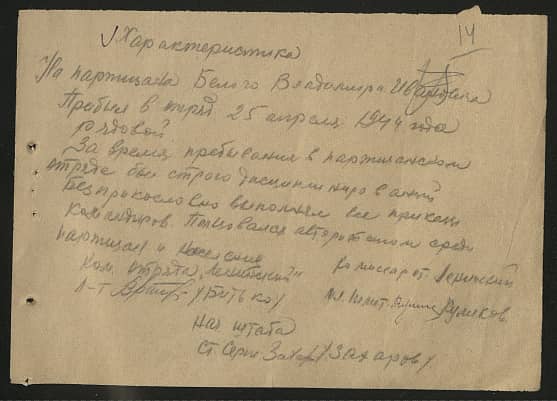 14
Характеристика
На партизана Белого Владимира Ивановича
Прибыл в отряд 25 апреля 1944 года
рядовой
За время пребывания в партизанском
отряде был строго дисциплинированый
Безприкословно выполнял все приказы
командиров. Пользовался авторитетом среди
партизан и населения
Ком. отряда „Ленинский" Комиссар от. Ленинский
л-т /Битько/ Куликов.
Нач штаба
Ст. Серж. /Захаров/